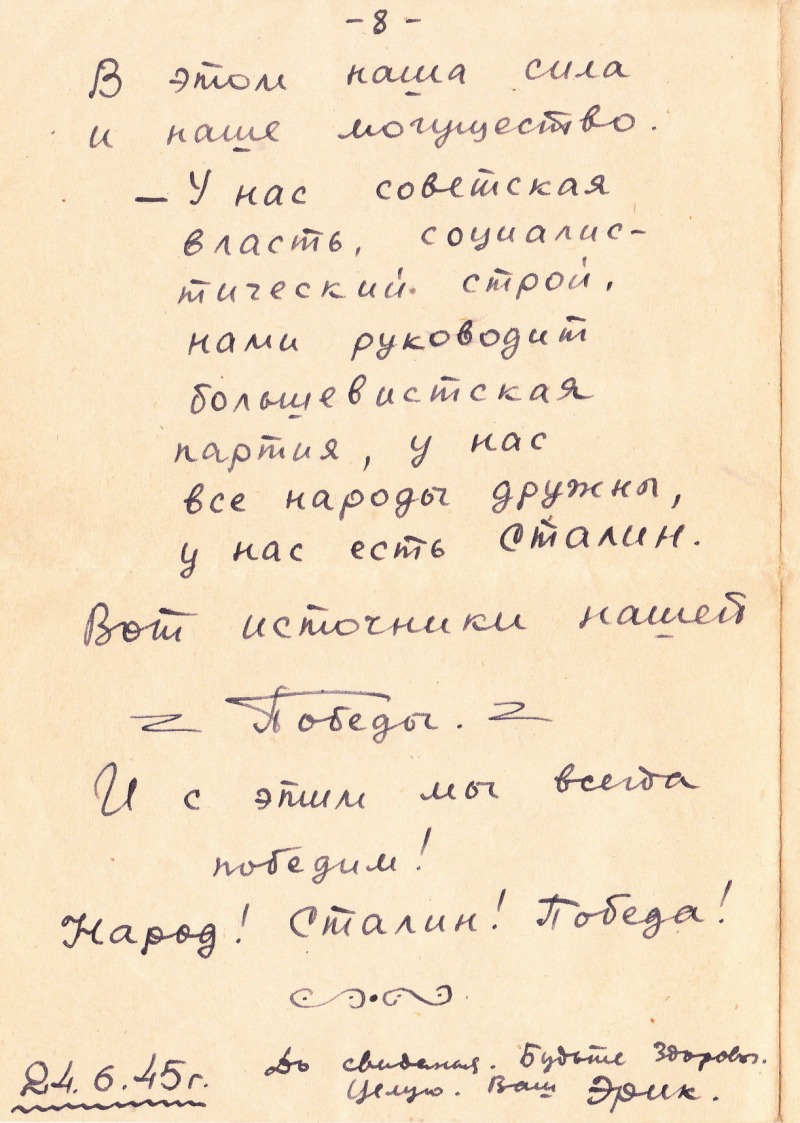 -8-
В этом наша сила
и наше могущество.
— У нас советская
власть, социалис-
тический строй,
нами руководит
большевистская
партия, у нас
все народы дружны,
у нас есть Сталин.
Вот источники нашей
Победы.
И с этим мы всегда
победим!
Народ! Сталин! Победа!
До свидания. Будьте здоровы.
24.6.45г.
Целую. Ваш Эрик.